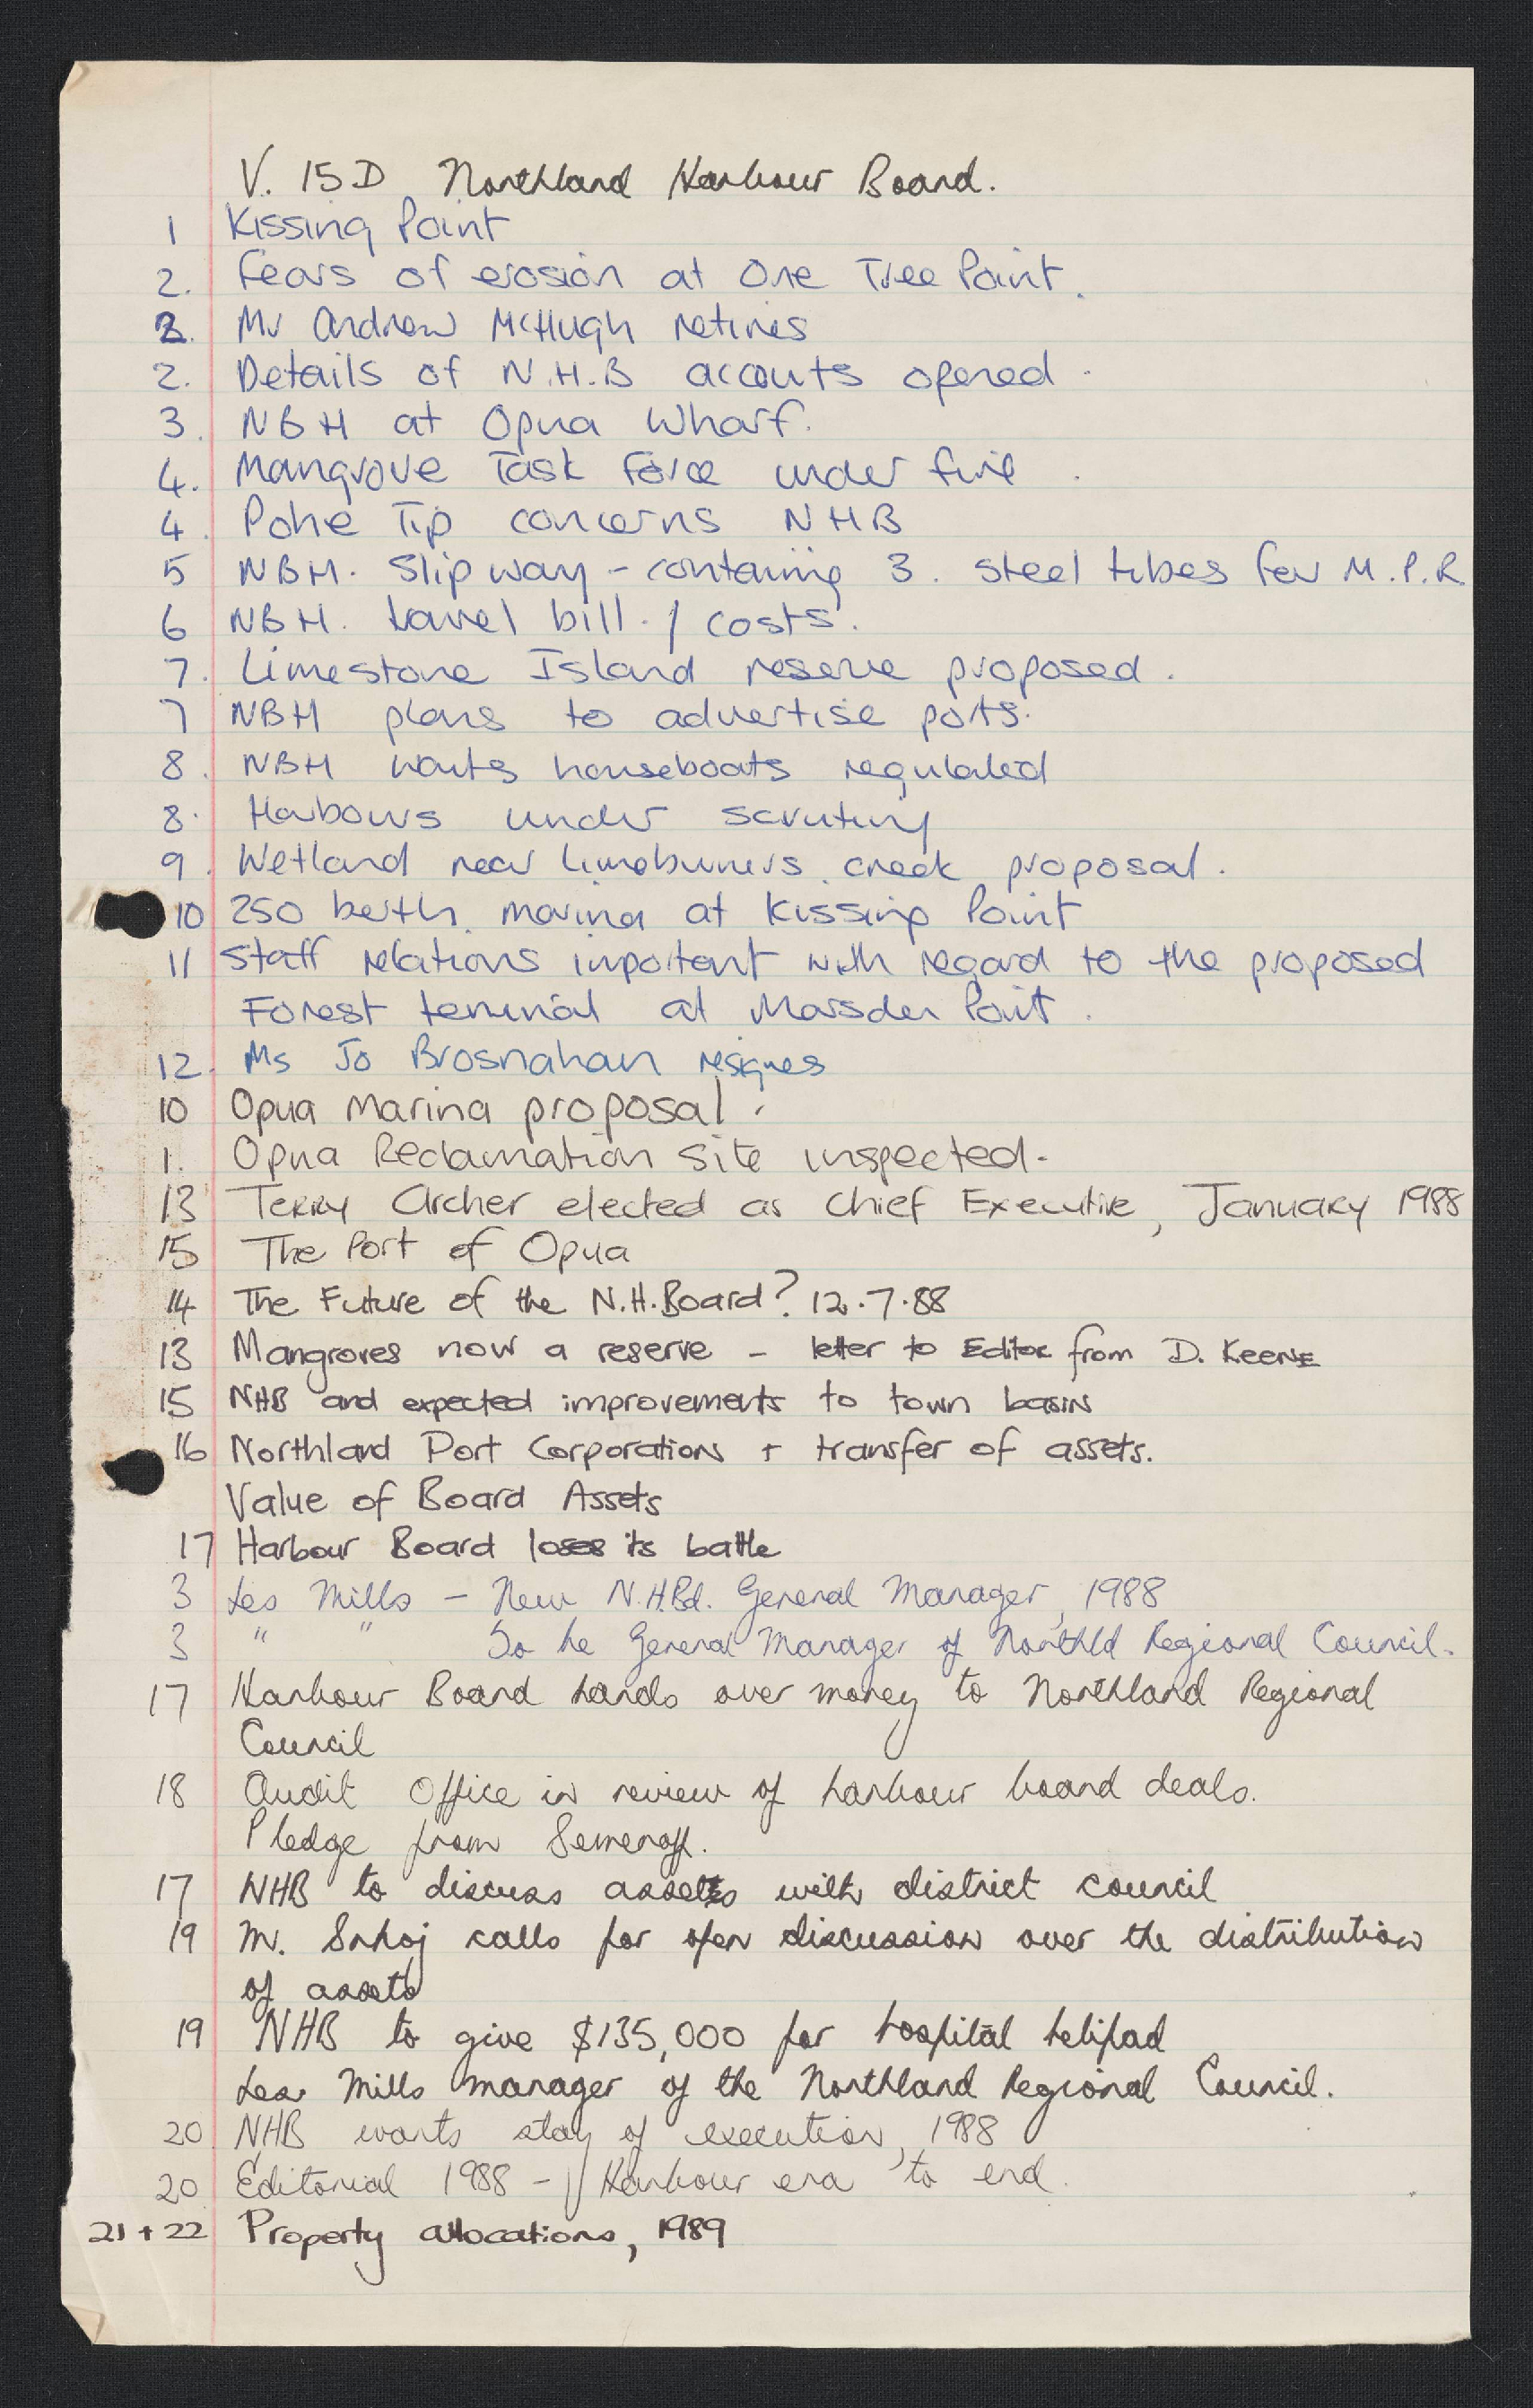 V. 15D Northland Harbour Board.
1 Kissing Point
2. Fears of erosion at One Tree Point.
2. Mr Andrew McHugh retires
2. Details of N.H.B accouts opened.
3. NBH at Opua Wharf.
4. Mangrove Task Force under fire.
4. Pohe Tip concerns NHB
5 NBH. Slipway - containing 3. steel tubes for M.P.R.
6 NBH. travel bill. / costs.
7. Limestone Island reserve proposed.
7 NBH plans to advertise ports.
8. NBH wants houseboats regulated
8. Harbours under scrutiny
9. Wetland near Limeburners creek proposal.
10 250 berth marina at Kissing Point
11 Staff relations important with regard to the proposed
Forest terminal at Marsden Point.
12. Ms Jo Brosnahan resignes
10 Opua Marina proposal.
1. Opua Reclamation site inspected.
13 Terry Archer elected as Chief Executive, January 1988
15 The Port of Opua
14 The Future of the N.H.Board? 12.7.88
13 Mangroves now a reserve - letter to Editor from D. Keene
15 NHB and expected improvements to town basin
16 Northland Port Corporation + transfer of assets.
Value of Board Assets
17 Harbour Board loses its battle
3 Les Mills - New N.H.Bd. General Manager, 1988
3 " " To be General Manager of Northld Regional Council.
17 Harbour Board hands over money to Northland Regional
Council
18 Audit Office in review of harbour board deals.
Pledge from Semenoff.
17 NHB to discuss assets with district council
19 M. calls for open discussion over the distribution
of assets
19 NHB to give $135,000 for hospital helipad
Les Mills manager of the Northland Regional Council.
20 NHB wants stay of execution, 1988
20 Editorial 1988 - Harbour era to end.
21 + 22 Property allocations, 1989